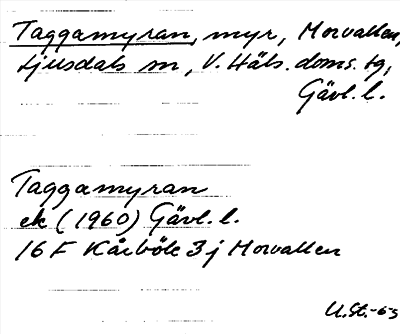 Taggamyran, myr, Morvallen,
Ljusdals sn, V. Häls. doms. tg,
Gävl. l.
Taggamyran
ek (1960) Gävl. l.
16 F Kårböle 3 j Morvallen
U.St.-63